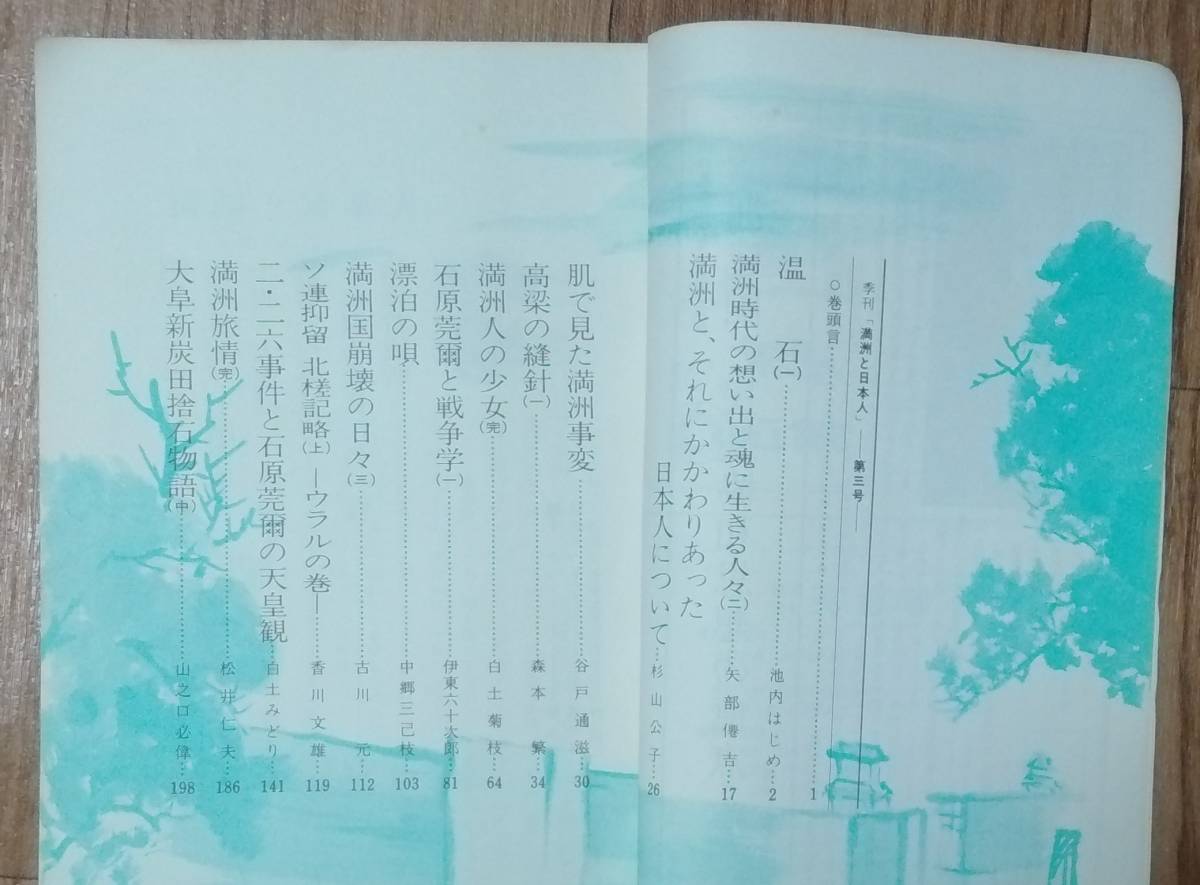 季刊「満洲と日本人」——第三号——
○巻頭言……1
温石(一)……池内はじめ…2
満洲時代の想い出と魂に生きる人々(二)……矢部僊吉…17
満洲と、それにかかわりあった
日本人について…杉山公子…26
肌で見た満洲事変……谷戸通滋…30
高梁の縫針(一)……森本繁…34
満洲人の少女(完)……白土菊枝…64
石原莞爾と戦争学(一)……伊東六十次郎…81
漂泊の唄……中郷三己枝…103
満洲国崩壊の日々(三)……古川元…112
ソ連抑留 北槎記略(上)—ウラルの巻—……香川文雄…119
二・二六事件と石原莞爾の天皇観…白土みどり…141
満洲旅情(完)……松井仁夫…186
大阜新炭田捨石物語(中)……山之口必偉…198